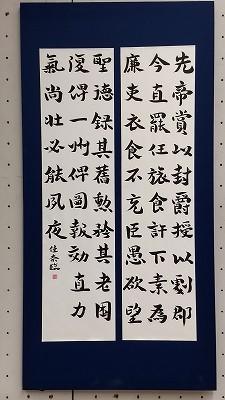 先帝賞以封爵授以劇郡
今直罷任旅食許下素為
廉吏衣食不充臣愚欲望
聖德録其舊勲矜其老困
復得一州俾圖報効直力
氣尚壯必能夙夜
佳奈臨